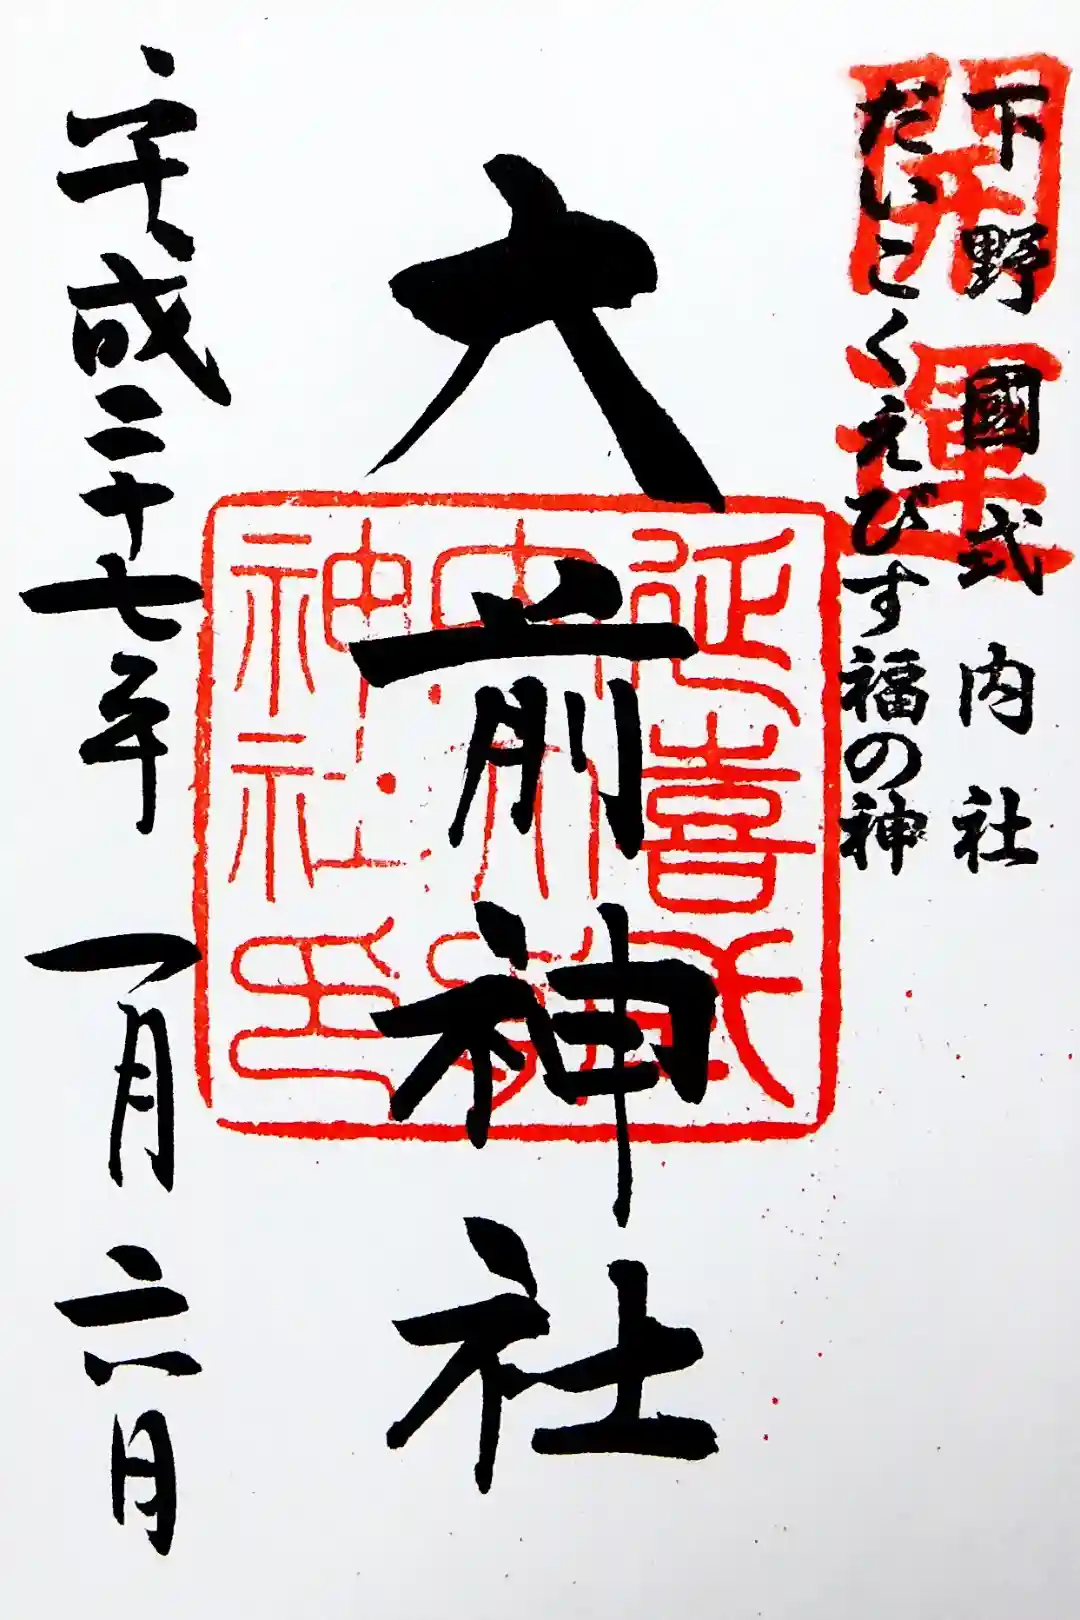 開運
下野國式内社
だいこくえびす福の神
大前神社
延喜式
内大前
神社印
平成二十七年一月六日